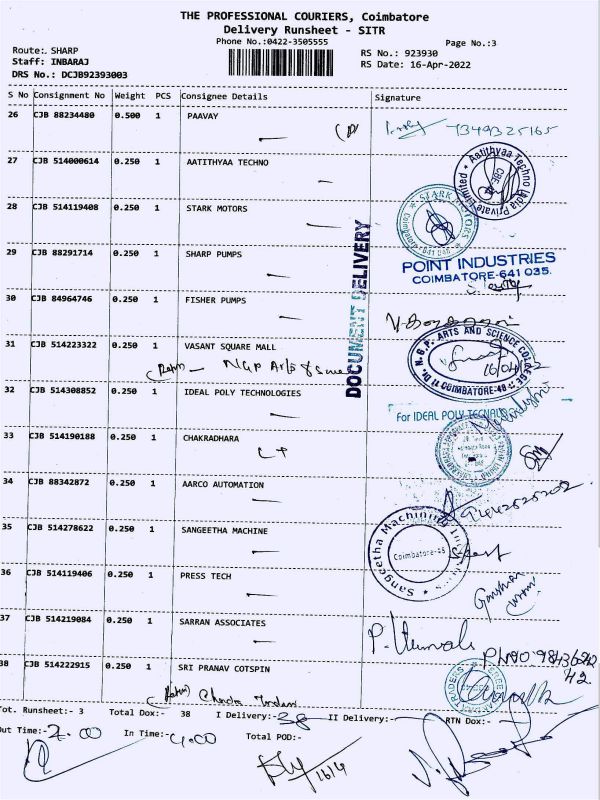 THE PROFESSIONAL COURIERS, Coimbatore
Delivery Runsheet - SITR
Phone No.:0422-3505555
Page No.:3
Route: SHARP
Staff: INBARAJ
DRS No.: DCJB92393003
RS No.: 923930
RS Date: 16-Apr-2022
S No Consignment No Weight PCS Consignee Details Signature
26 CJB 88234480 0.500 1 PAAVAY
7349325165
27 CJB 514000614 0.250 1 AATITHYAA TECHNO
Aatithyaa Techno India Private Limited
CBE
28 CJB 514119408 0.250 1 STARK MOTORS
DOCUMENT DELIVERY
29 CJB 88291714 0.250 1 SHARP PUMPS
POINT INDUSTRIES
COIMBATORE-641 035.
30 CJB 84964746 0.250 1 FISHER PUMPS
31 CJB 514223322 0.250 1 VASANT SQUARE MALL
NGP Arts &
Dr. N. G. P. ARTS AND SCIENCE COLLEGE
COIMBATORE-48
16/04/22
32 CJB 514308852 0.250 1 IDEAL POLY TECHNOLOGIES
For IDEAL POLY
33 CJB 514190188 0.250 1 CHAKRADHARA
34 CJB 88342872 0.250 1 AARCO AUTOMATION
35 CJB 514278622 0.250 1 SANGEETHA MACHINE
Sangeetha Machining
Coimbatore-48
36 CJB 514119406 0.250 1 PRESS TECH
37 CJB 514219084 0.250 1 SARRAN ASSOCIATES
38 CJB 514222915 0.250 1 SRI PRANAV COTSPIN
Tot. Runsheet:- 3 Total Dox:- 38 I Delivery:- 38 II Delivery:- RTN Dox:-
Out Time:- 2.00 In Time:- 4.00 Total POD:-
16/4